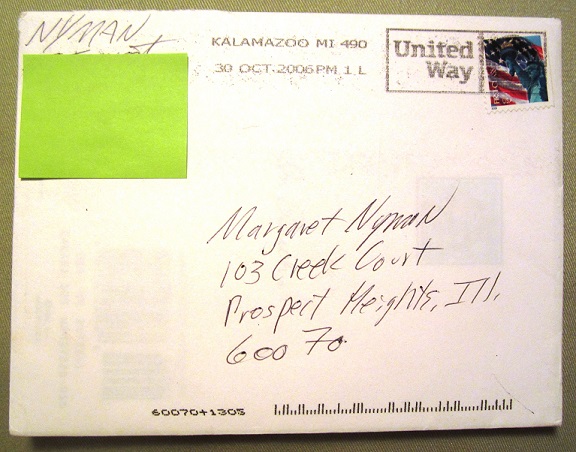 NYMAN
KALAMAZOO MI 490
30 OCT 2006 PM 1 L
United
Way
Margaret Nyman
103 Creek Court
Prospect Heights, Ill.
60070
60070+1305